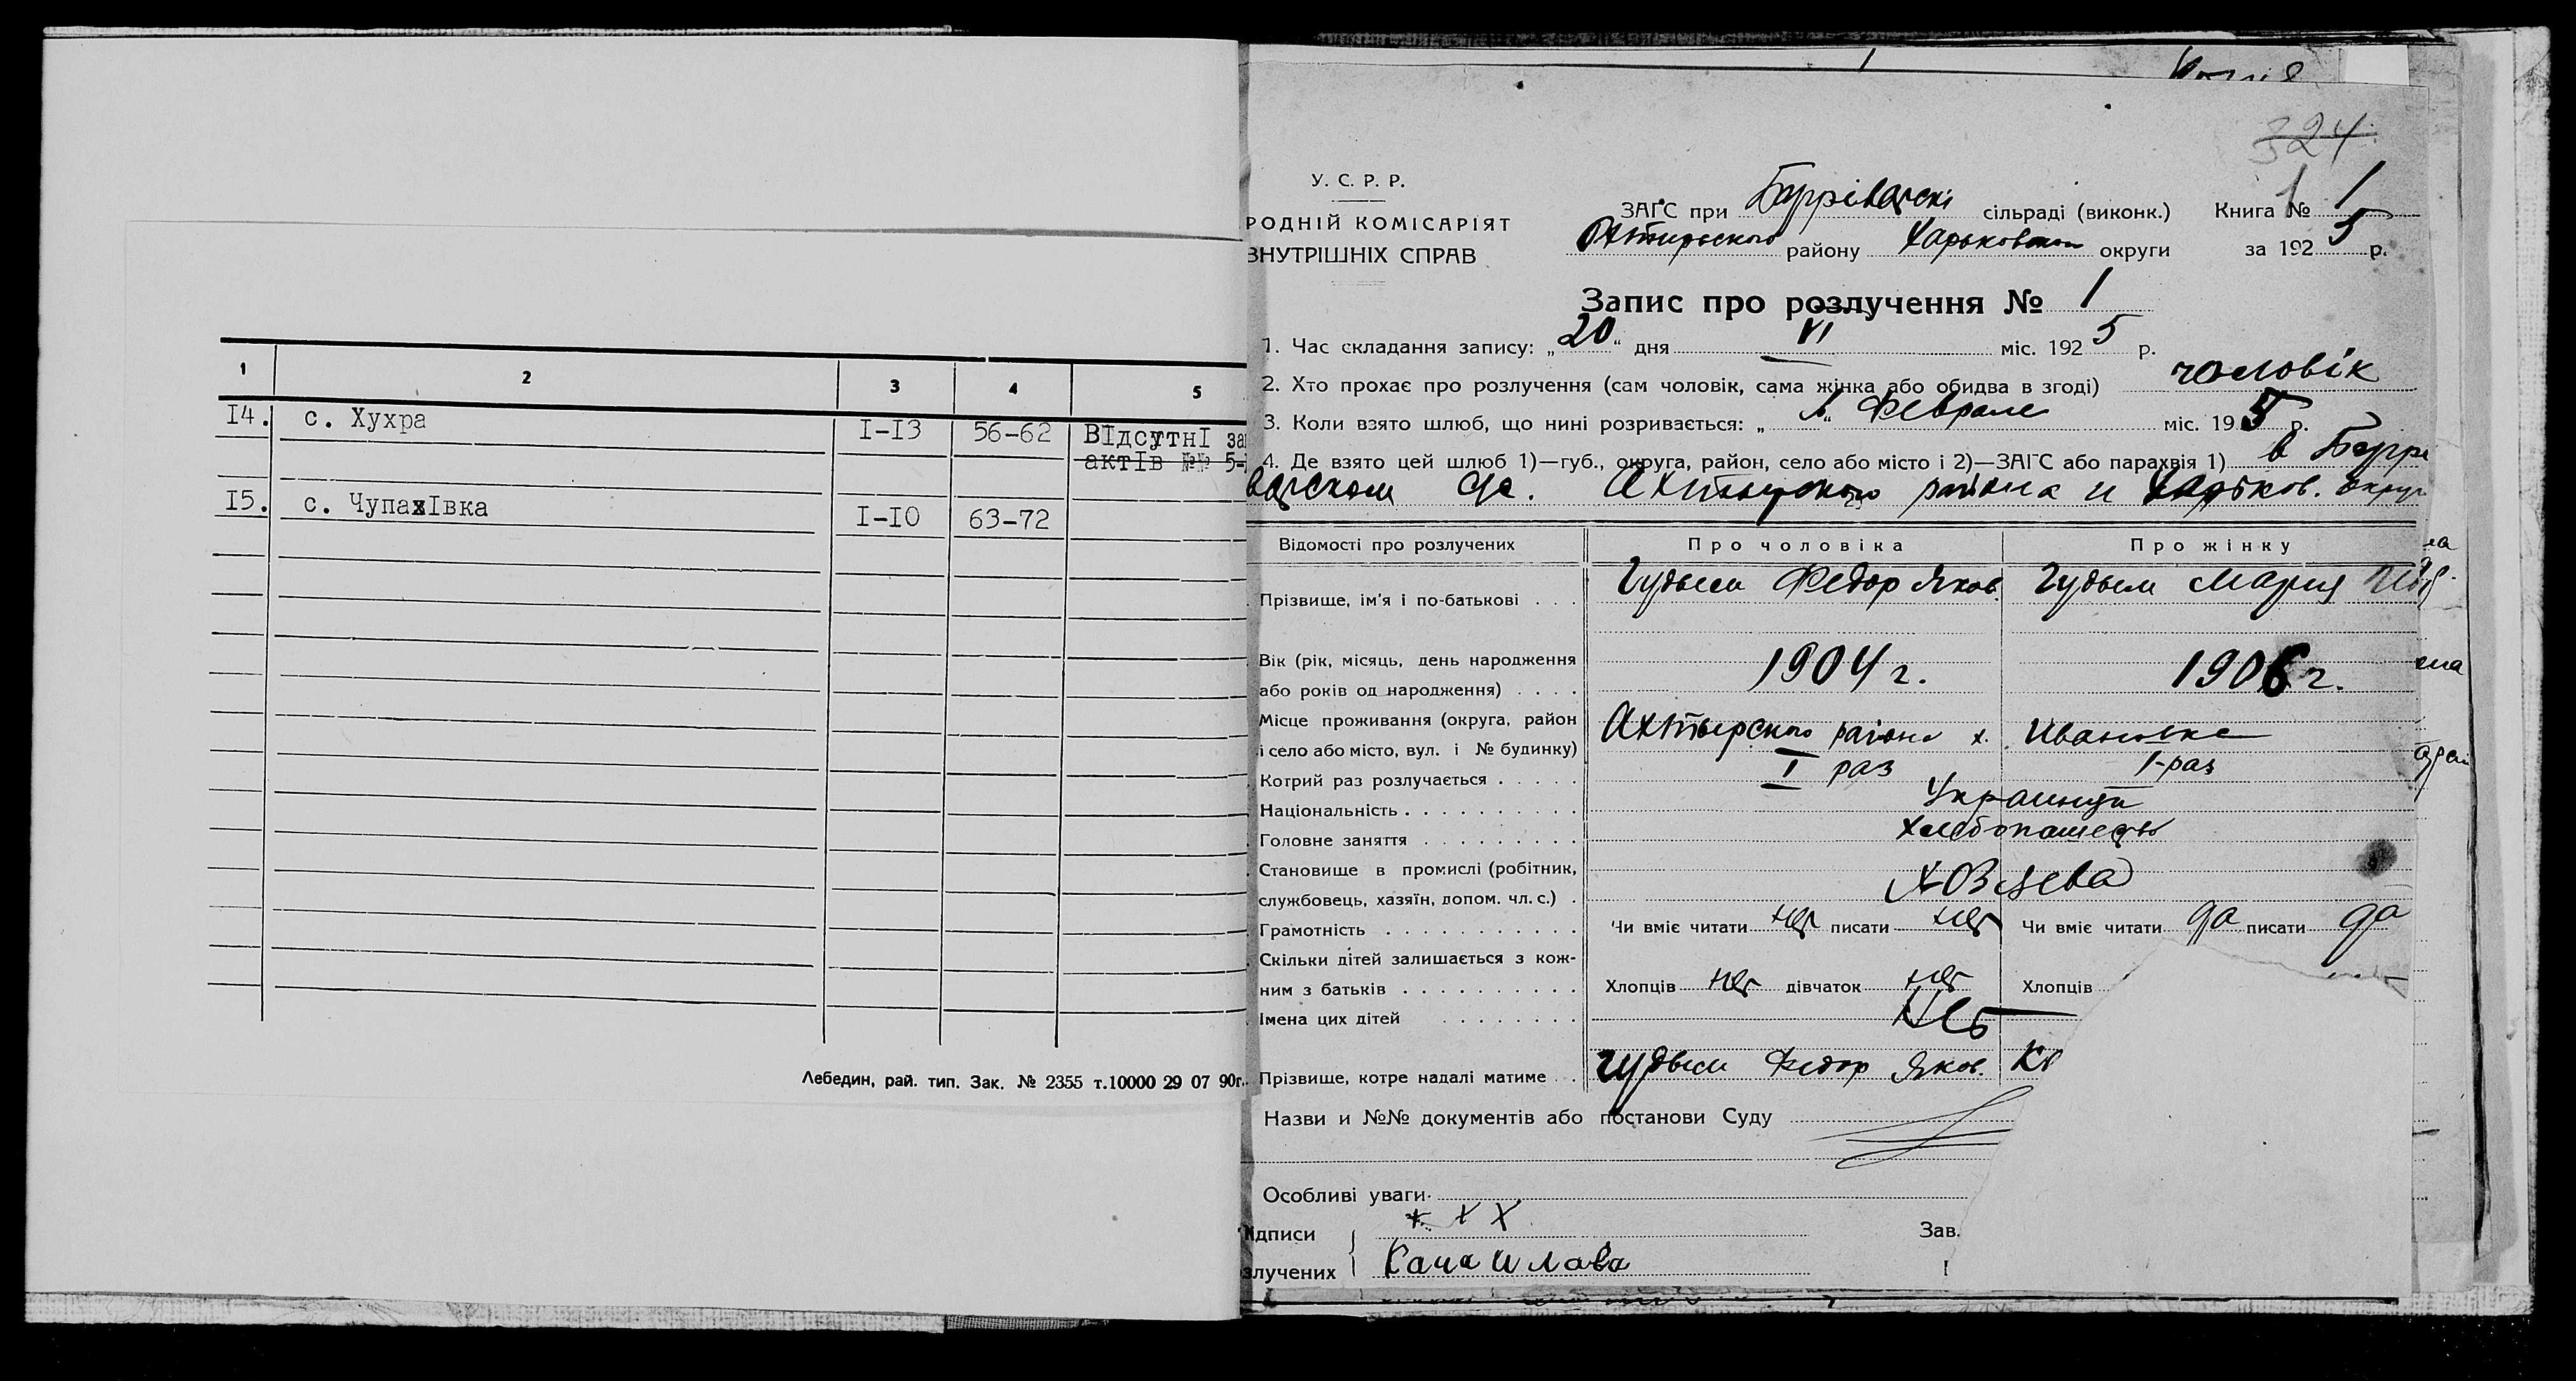 1 2 3 4 5
14. с. Хухра I-I3 56-62 ВІдсутнІ за
актІв №№ 5-
15. с. ЧупахІвка I-IO 63-72
Лебедин, рай. тип. Зак. № 2355 т.10000 29 07 90г.
324
У. С. Р. Р.
РОДНІЙ КОМІСАРІЯТ
ВНУТРІШНІХ СПРАВ
ЗАГС при сільраді (виконк.) Книга № 1
району Харьковской округи за 1925 р.
Запис про розлучення № 1
1. Час складання запису: „20“ дня VI міс. 1925 р.
2. Хто прохає про розлучення (сам чоловік, сама жінка або обидва в згоді) чоловік
3. Коли взято шлюб, що нині розривається: „ “ Феврале міс. 195 р.
4. Де взято цей шлюб 1)—губ., округа, район, село або місто і 2)—ЗАГС або парахвія 1) в
района и Харьков. округ
Відомості про розлучених Про чоловіка Про жінку
Прізвище, ім'я і по-батькові . . . Гудым Федор Яков. Гудым Мария
Вік (рік, місяць, день народження
або років од народження) . . . . 1904 г. 1906 г.
Місце проживання (округа, район
і село або місто, вул. і № будинку) Ахтырского района х. Ивановка
Котрий раз розлучається . . . . . I раз I-раз
Національність . . . . . . . . . . Украинцы
Головне заняття . . . . . . . . . хлебопашество
Становище в промислі (робітник,
службовець, хазяїн, допом. чл. с.) .
Грамотність . . . . . . . . . . . Чи вміє читати нет писати нет Чи вміє читати да писати да
Скільки дітей залишається з кож-
ним з батьків . . . . . . . . . . Хлопців нет дівчаток нет Хлопців
Імена цих дітей . . . . . . . . Нет
Прізвище, котре надалі матиме . . Гудым Федор Яков. К
Назви и №№ документів або постанови Суду
Особливі уваги
ідписи х х х Зав.
злучених